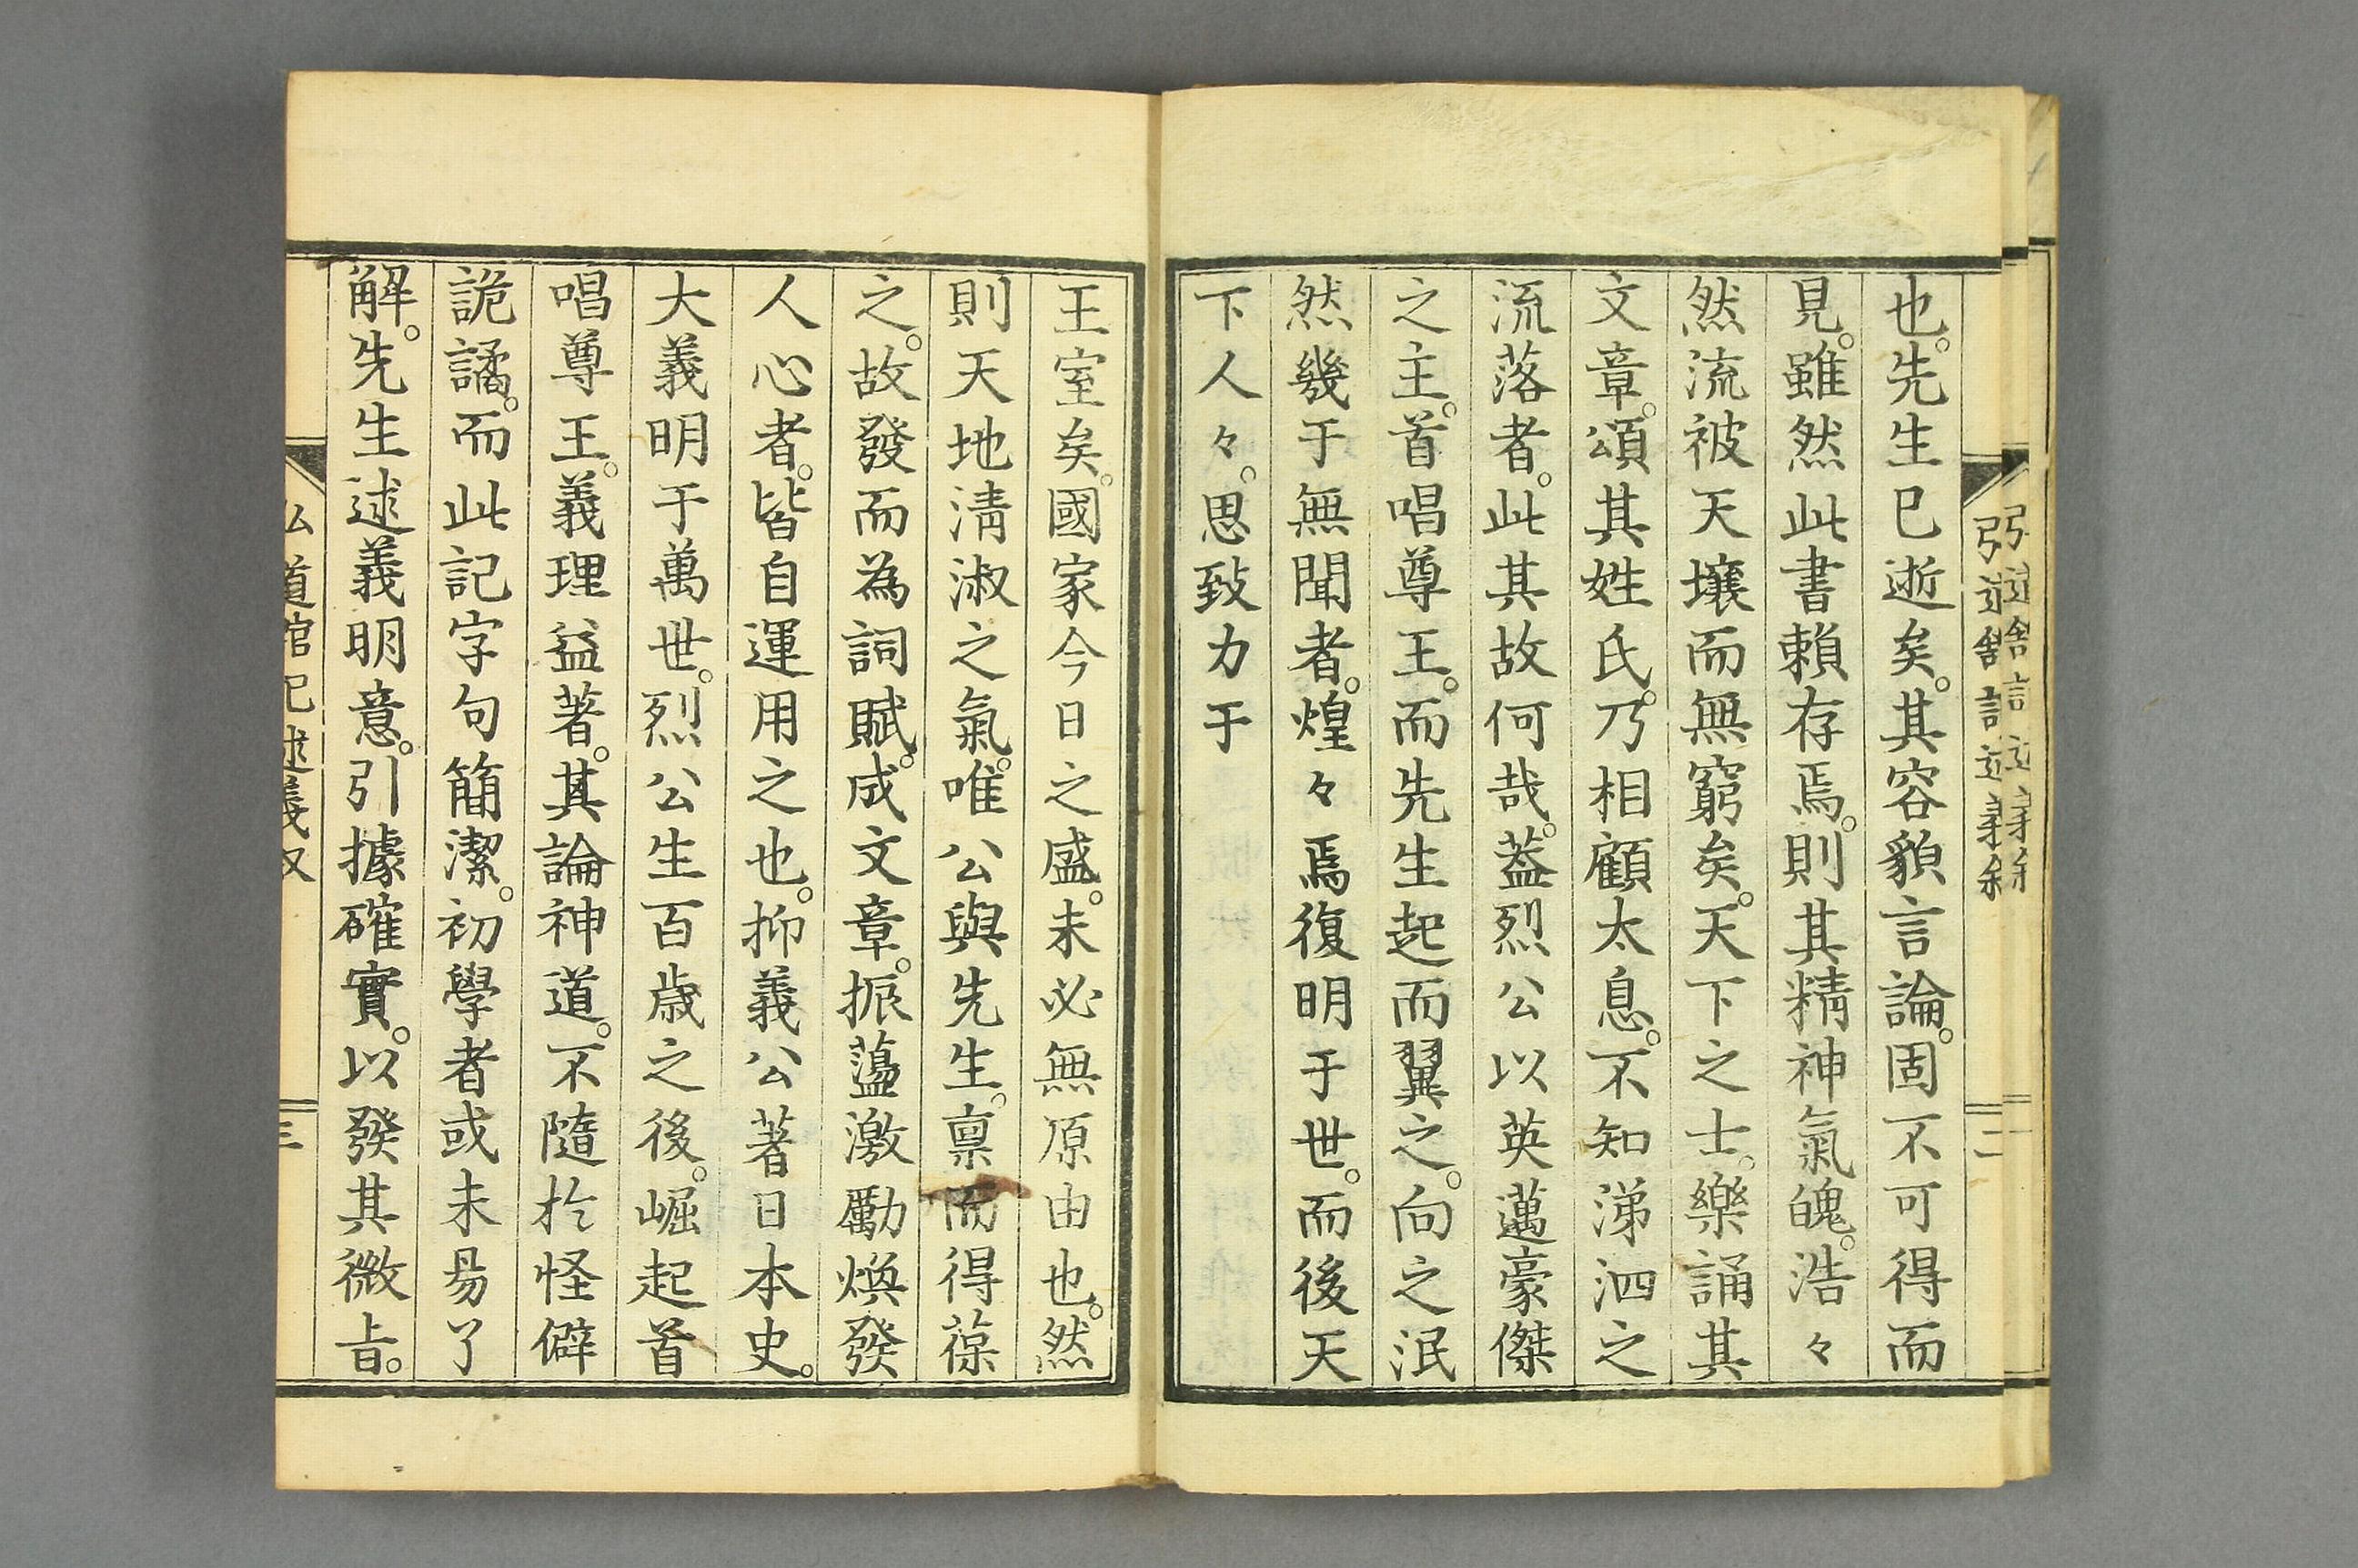 也。先生已逝矣。其容貌言論。固不可得而
見。雖然此書賴存焉。則其精神氣魄。浩々
然流被天壤而無窮矣。天下之士。樂誦其
文章。頌其姓氏。乃相顧太息。不知涕泗之
流落者。此其故何哉。蓋烈公以英邁豪傑
之主。首唱尊王。而先生起而翼之。向之泯
然幾于無聞者。煌々焉復明于世。而後天
下人々。思致力于
王室矣。國家今日之盛。未必無原由也。然
則天地淸淑之氣。唯公與先生。禀而得葆
之。故發而為詞賦。成文章。振蘯激勵煥發
人心者。皆自運用之也。抑義公著日本史。
大義明于萬世。烈公生百歳之後。崛起首
唱尊王。義理益著。其論神道。不隨於怪僻
詭譎。而此記字句簡潔。初學者或未易了
解。先生述義明意。引據確實。以發其微旨。
弘道館記述義叙
三